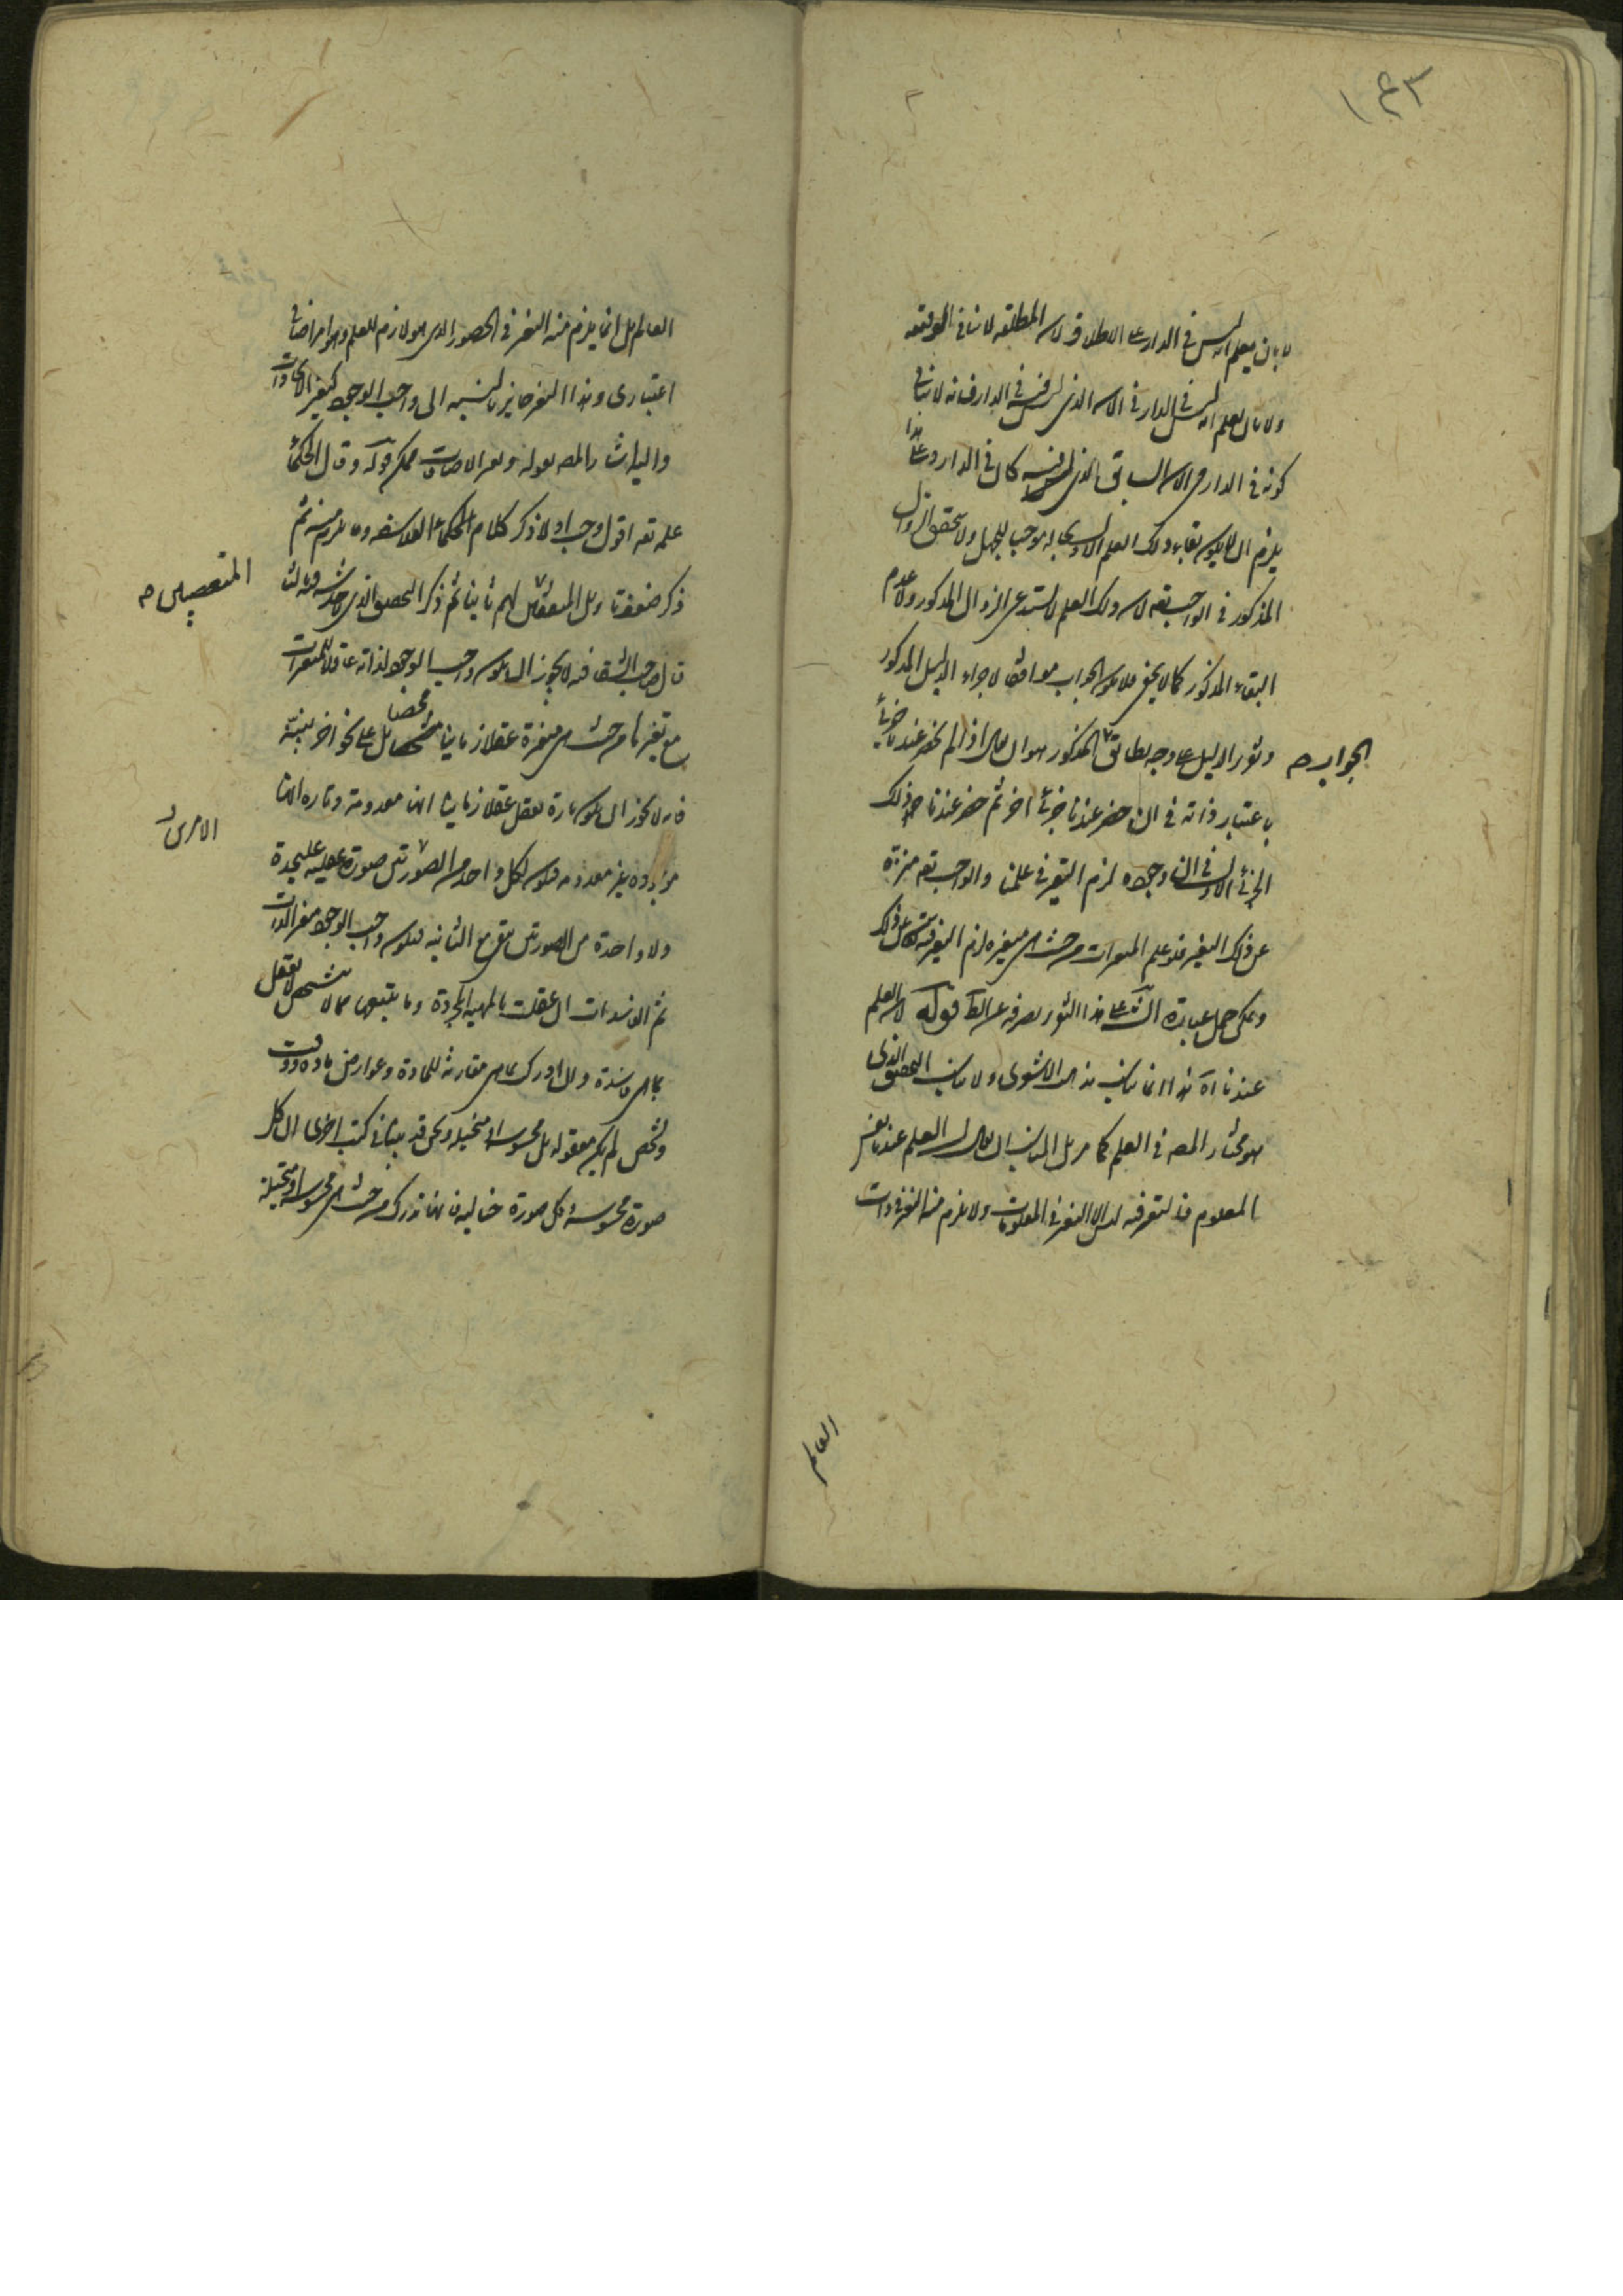 ١٤٣
لا بان يعلم انه ليس في الدار على الاطلاق لان المطلقة لا تنافي الموقتة
ولا بان يعلم انه ليس في الدار في الان الذي ليس فيه في الدار فانه لا ينافي
كونه في الدار في الان السابق الذي كان في الدار وعلى هذا
يلزم ان لا يكون بقاء ذلك العلم الاول موجبا للجهل ولا يتحقق الزوال
المذكور في الواجب تعه لان ذلك العلم لا يستدعي الزوال المذكور ولا عدم
البقاء المذكور كما لا يخفى فلا يكون الجواب موافقا لاجراء الدليل المذكور
الجواب صح
وتقرير الدليل على وجه يطابق المذكور هو ان يقال اذا لم يحضر عندنا جزئي
باعتبار ذاته في ان حضر عندنا جزئي اخر ثم حضر عندنا ذلك
الجزئي الاول في ان وجوده لزم التغير في علمنا والواجب تعه منزه
عن ذلك التغير فلو علم المتغيرات من حيث هي متغيرة لزم التغير فيه تعالى عن ذلك
ويمكن حمل عبارة الش على هذا التقرير بصرفه عن الظ قوله لان العلم
عندنا اه هذا انما يناسب مذهب الاشعري ولا يناسب التحقيق الذي
هو مختار المصه في العلم كما مر بل المناسب ان يقال ان العلم عندنا نفس
المعلوم فالتغير فيه ليس الا التغير في المعلومات ولا يلزم منه التغير في ذات
العالم
العالم بل انما يلزم منه التغير في الحضور الذي هو لازم للعلم وهو امر اضافي
اعتباري وهذا التغير جايز بالنسبه الى واجب الوجود كتغير الايجادات
واليه اشار المصه بقوله وتغير الاضافات ممكن قوله وقال الحكماء
علمه تعه اقول وجب اولا ذكر كلام الحكماء الفلاسفه وما يلزم منه ثم
ذكر ضعف تاويل المتعصبين لهم ثانيا ثم ذكر التحقيق الذي لا خدشه فيه ثالثا
المتعصبين صح
قال صاحب الشفا فيه لا يجوز ان يكون واجب الوجود لذاته عاقلا للمتغيرات
مع تغيرها من حيث هي متغيرة عقلا زمانيا مشخصا بل على نحو اخر نبينه
فانه لا يجوز ان يكون تارة يعقل عقلا زمانيا انها معدومة وتارة انها
موجوده غير معدومه فيكون لكل واحد من الصورتين صورة عقليه عليحدة
الامرين
ولا واحدة من الصورتين تبقى مع الثانيه فيكون واجب الوجود متغير الذات
ثم الفاسدات ان عقلت بالمهيه المجردة وما يتبعها مما لا يتشخص لم يعقل
بما هي فاسدة وان ادركت بما هي مقارنة للمادة وعوارض مادة ووقت
وتشخص لم يكن معقوله بل محسوسة او متخيله ونحن قد بينا في كتب اخرى ان كل
صورة محسوسة وكل صورة خياليه فانما ندرك من حيث هي محسوسة او متخيلة